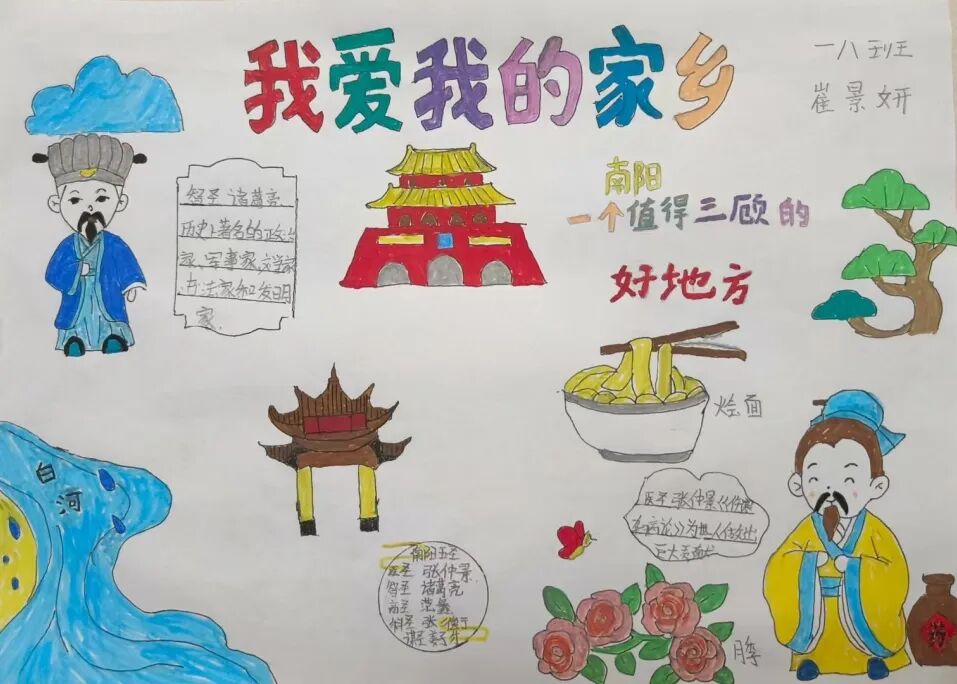 我爱我的家乡
一八班
崔景妍
南阳
一个值得三顾的
好地方
智圣 诸葛亮
历史上著名的政治
家、军事家、文学家
书法家和发明
家.
烩面
白河
医圣 张仲景《伤寒
杂病论》为世人作出
巨大贡献
南阳五圣
医圣 张仲景.
智圣 诸葛亮
商圣 范蠡
科圣 张衡
谋圣 姜子牙
月季
药